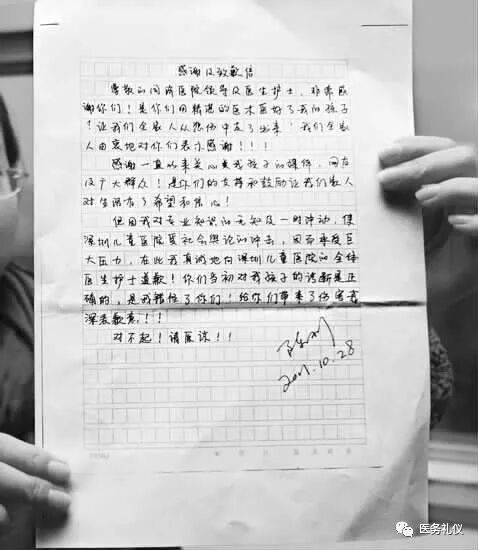 感谢及致歉信
尊敬的同济医院领导及医生护士，非常感
谢你们！是你们用精湛的医术医好了我的孩子
！让我们全家人从悲伤中走了出来！我们全家
人由衷地对你们表示感谢！！！
感谢一直以来关心我孩子的媒体、网友
及广大群众！是你们的支持和鼓励让我们家人
对生活有了希望和信心！
但因我对专业知识的无知及一时冲动，使
深圳儿童医院受社会舆论的冲击，因而承受巨
大压力，在此我真诚地向深圳儿童医院的全体
医生护士道歉！你们当初对我孩子的诊断是正
确的，是我错怪了你们！给你们带来了伤害我
深表歉意！！
对不起！请原谅！！
2011.10.28
医务礼仪